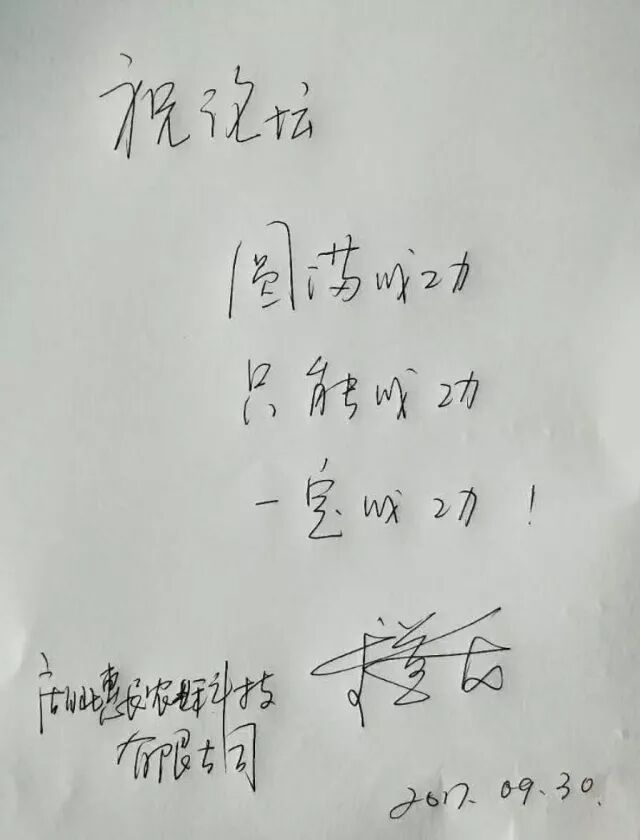 祝论坛
圆满成功
只能成功
一定成功！
湖北惠民农业科技
有限公司
2017.09.30.